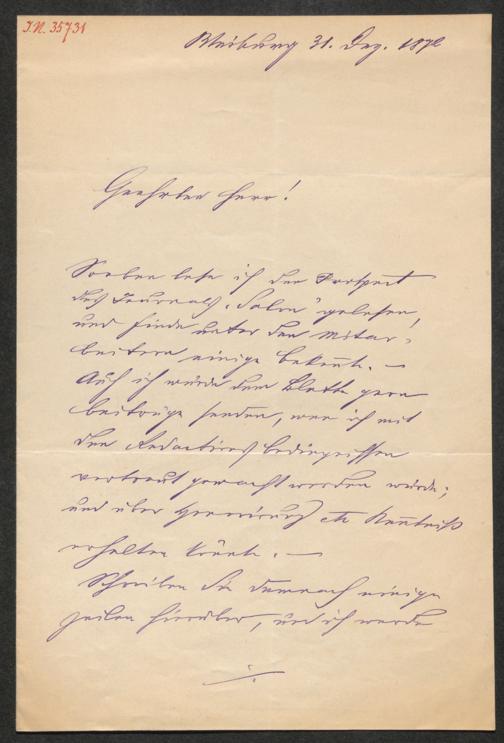 I.N. 35731
Marburg 31. Dez. 1872
Geehrter Herr!
Soeben habe ich den Prospect
des Journals „Salon“ gelesen,
und finde unter den Mitar-
beitern einige bekannte. —
Auch ich würde dem Blatte gern
Beiträge senden, wenn ich mit
den Redactions bedingnissen
vertraut gemacht worden würde;
und über Honorirung etc Kenntniß
erhalten könnte. —
Schreiben Sie demnach einige
Zeilen hierüber, und ich werde